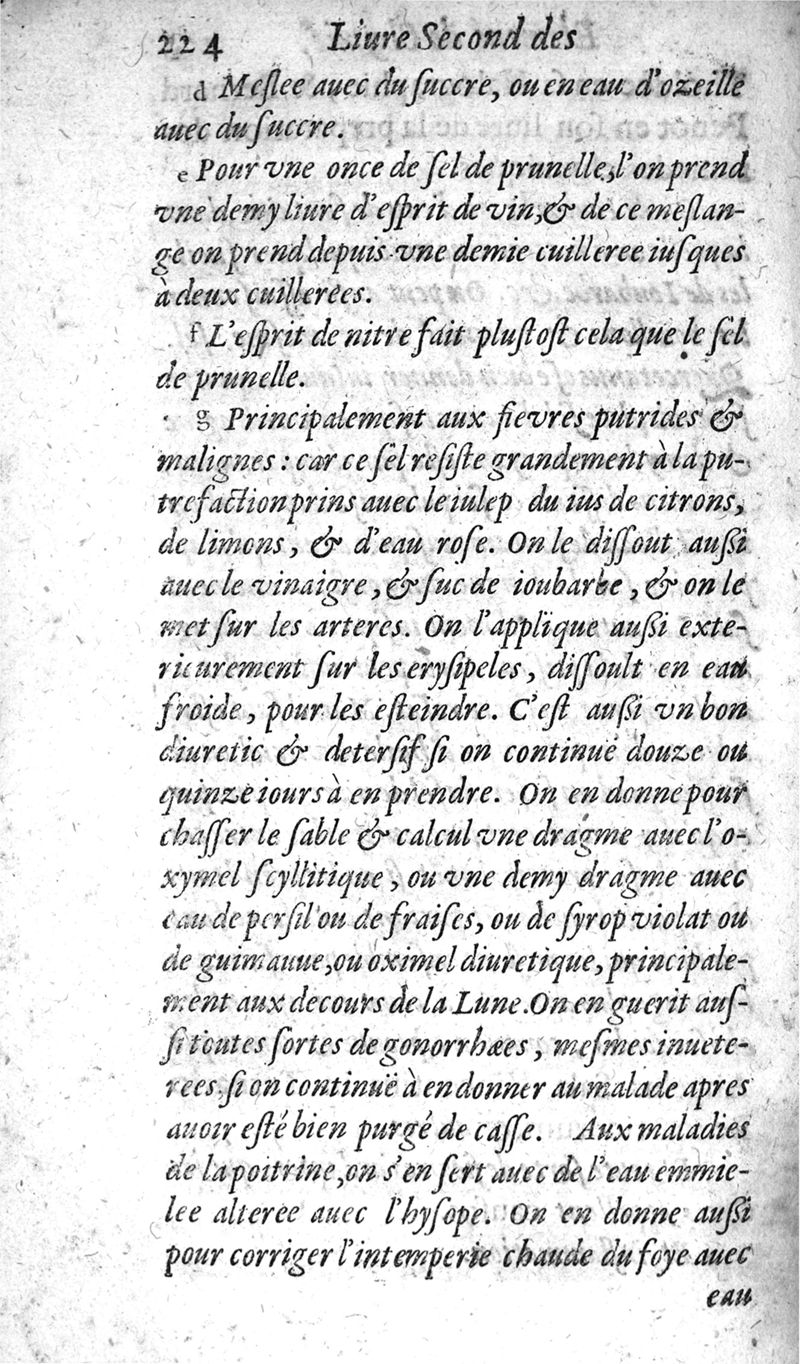 224 Liure Second des
d Meſlee auec du ſuccre, ou en eau d'ozeille
auec du ſuccre.
e Pour vne once de ſel de prunelle, l'on prend
vne demy liure d'eſprit de vin, & de ce meſlan-
ge on prend depuis vne demie cuilleree iuſques
à deux cuillerées.
f L'eſprit de nitre fait pluſtoſt cela que le ſel
de prunelle.
g Principalement aux fievres putrides &
malignes : car ce ſel reſiſte grandement à la pu-
trefaction prins auec le iulep du ius de citrons,
de limons, & d'eau roſe. On le diſſout auſſi
auec le vinaigre, & ſuc de ioubarbe, & on le
met ſur les arteres. On l'applique auſſi exte-
rieurement ſur les eryſipeles, diſſoult en eau
froide, pour les eſteindre. C'eſt auſſi vn bon
diuretic & deterſif ſi on continuë douze ou
quinze iours à en prendre. On en donne pour
chaſſer le ſable & calcul vne dragme auec l'o-
xymel ſcyllitique, ou vne demy dragme auec
eau de perſil ou de fraiſes, ou de ſyrop violat ou
de guimauue, ou oximel diuretique, principale-
ment aux decours de la Lune. On en guerit auſ-
ſi toutes ſortes de gonorrhæes, meſmes inuete-
rees ſi on continuë à en donner au malade apres
auoir eſté bien purgé de caſſe. Aux maladies
de la poitrine, on s'en ſert auec de l'eau emmie-
lee alteree auec l'hyſope. On en donne auſſi
pour corriger l'intemperie chaude du foye auec
eau